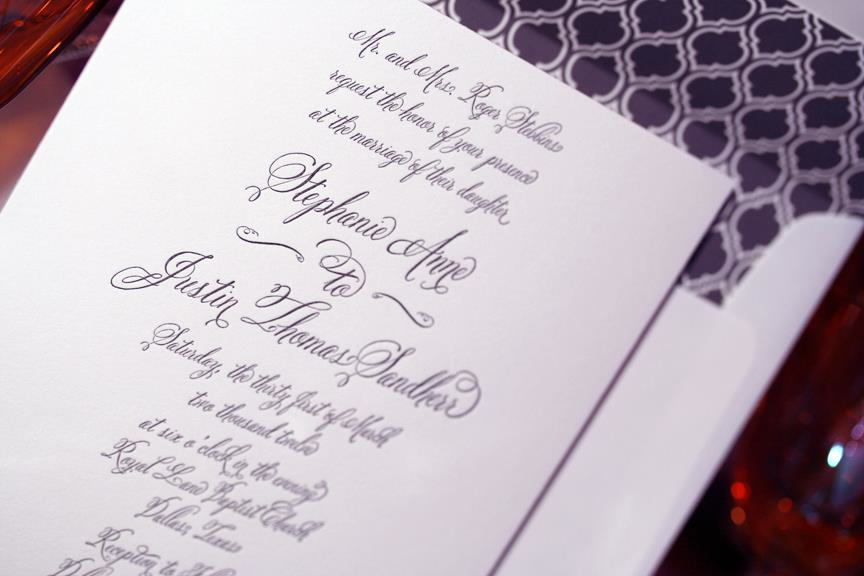 Mr. and Mrs. Roger Stebbins
request the honor of your presence
at the marriage of their daughter
Stephanie Anne
to
Justin Thomas Sandherr
Saturday, the thirty first of March
two thousand twelve
at six o'clock in the evening
Royal Lane Baptist Church
Dallas, Texas
Reception to